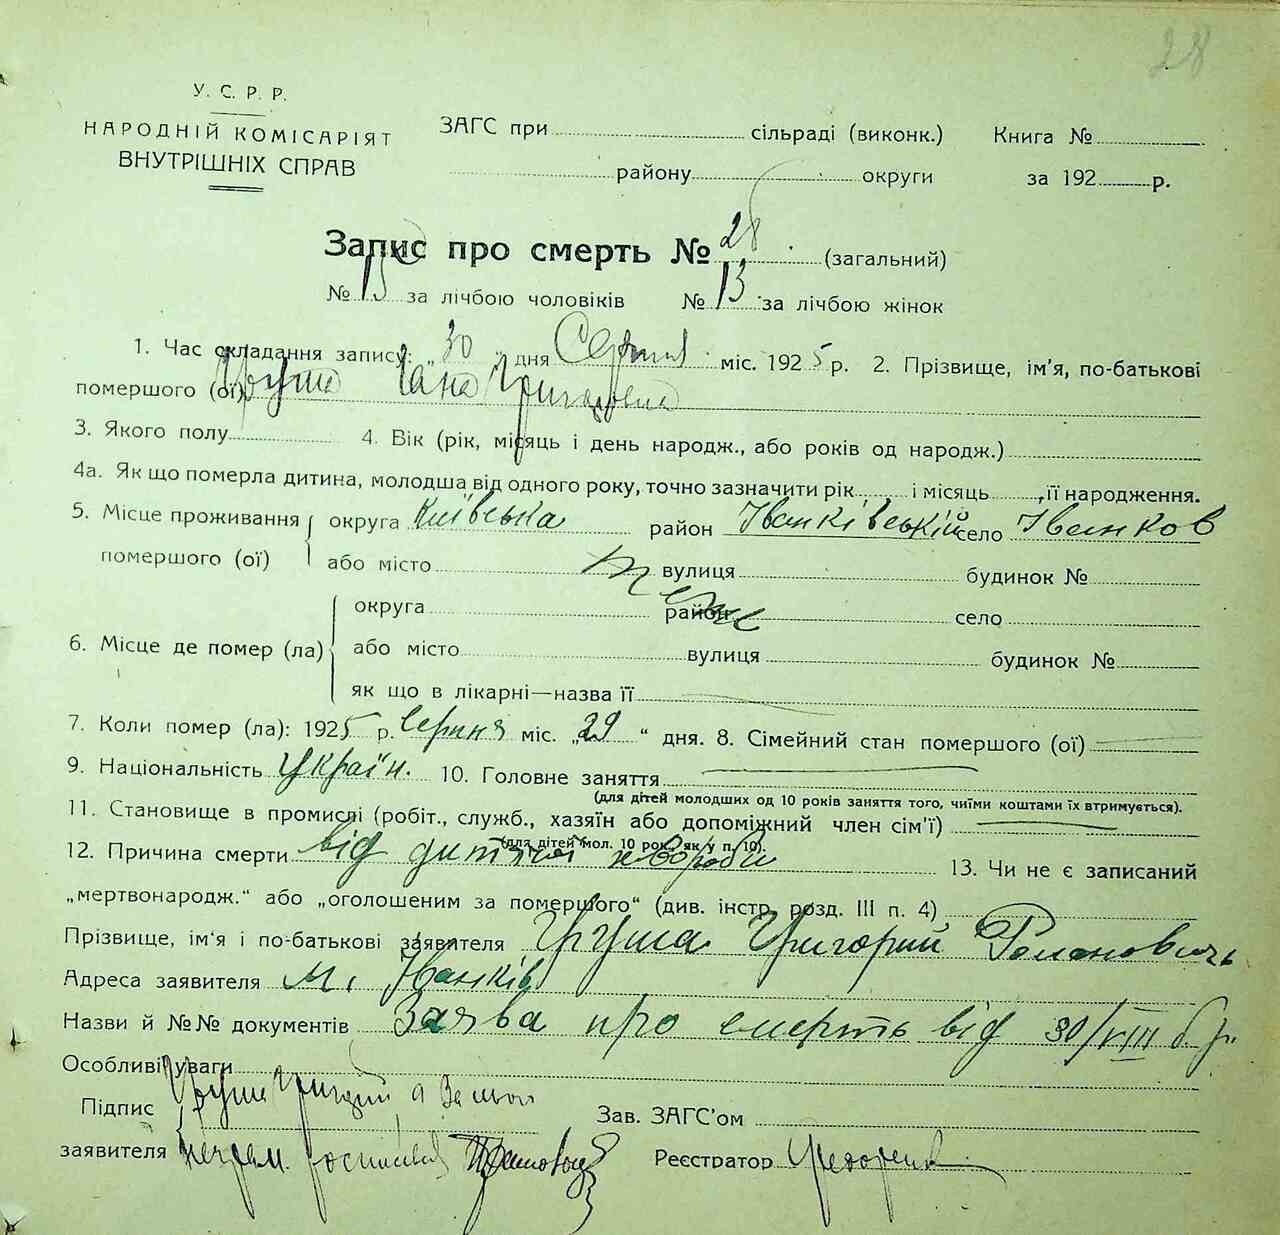 28
У. С. Р. Р.
НАРОДНІЙ КОМІСАРІЯТ
ВНУТРІШНІХ СПРАВ
ЗАГС при сільраді (виконк.)
району округи
Книга №
за 192 р.
Запис про смерть № 28 (загальний)
№ 15 за лічбою чоловіків № 13 за лічбою жінок
1. Час складання запису: „30" дня Серпня міс. 1925 р. 2. Прізвище, ім'я, по-батькові
помершого (ої) Груша Гана Григоровна
3. Якого полу 4. Вік (рік, місяць і день народж., або років од народж.)
4а. Як що померла дитина, молодша від одного року, точно зазначити рік і місяць її народження.
5. Місце проживання помершого (ої) округа Київська район Іванківський село Іванков
або місто вулиця будинок №
6. Місце де помер (ла) округа район село
або місто вулиця будинок №
як що в лікарні—назва її
7. Коли помер (ла): 1925 р. Серпня міс. „29" дня. 8. Сімейний стан помершого (ої)
9. Національність Україн. 10. Головне заняття
(для дітей молодших од 10 років заняття того, чиїми коштами їх втримується).
11. Становище в промислі (робіт., служб., хазяїн або допоміжний член сім'ї)
(для дітей мол. 10 рок. як у п. 10).
12. Причина смерти від дитячої хвороби 13. Чи не є записаний
„мертвонародж." або „оголошеним за помершого" (див. інстр. розд. III п. 4)
Прізвище, ім'я і по-батькові заявителя Груша Григорий Романовичь
Адреса заявителя м. Іванків
Назви й №№ документів Заява про смерть від 30/VIII б.р.
Особливі уваги
Підпис заявителя Груша Григорий а За його
неграм. росписався
Зав. ЗАГС'ом
Реєстратор